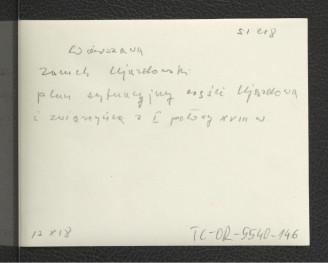 Warszawa
Zamek Ujazdowski
plan sytuacyjny części Ujazdowa
i zwierzyńca z I połowy XVIII w.
12 x 18
TC-DR-5540-146